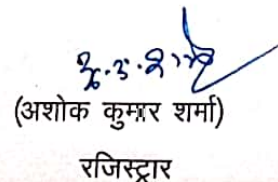 (अशोक कुमार शर्मा)
रजिस्ट्रार